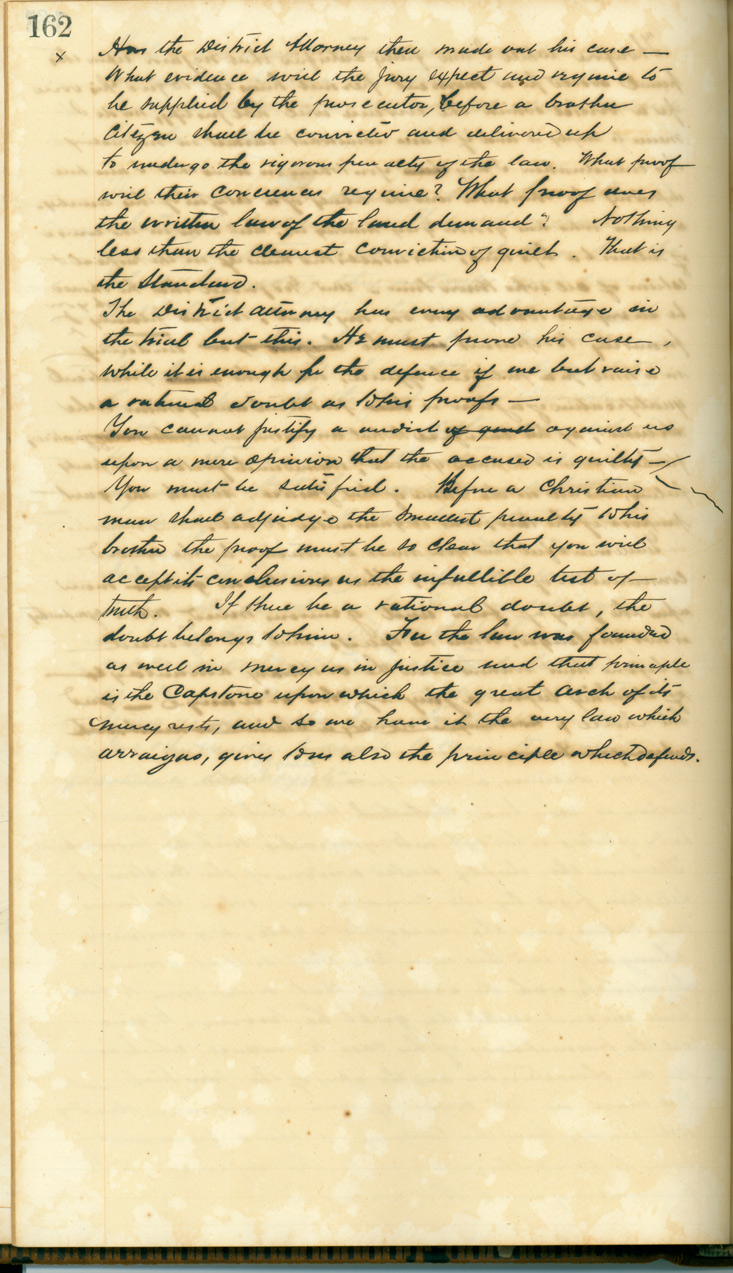 162
x
Has the District Attorney then made out his case —
What evidence will the jury expect and require to
be supplied by the prosecutor, before a brother
Citizen shall be convicted and delivered up
to undergo the rigorous penalty of the law. What proof
will their conciences require? What proof does
the written law of the land demand? Nothing
less than the clearest conviction of guilt. That is
the standard.
The District attorney has every advantage in
the trial but this. He must prove his case,
while it is enough for the defence if we but raise
a rational doubt as to his proofs —
You cannot justify a verdict of guilt against us
upon a mere opinion that the accused is guilty —
You must be satisfied. Before a Christian
man shall adjudge the smallest penalty to his
brother the proof must be so clear that you will
accept its conclusions as the infallible test of
truth. If there be a rational doubt, the
doubt belongs to him. For the law was founded
as well in mercy as in justice and that principle
is the Capstone upon which the great arch of its
mercy rests, and so we have it the very law which
arraigns, gives to us also the principle which defends.